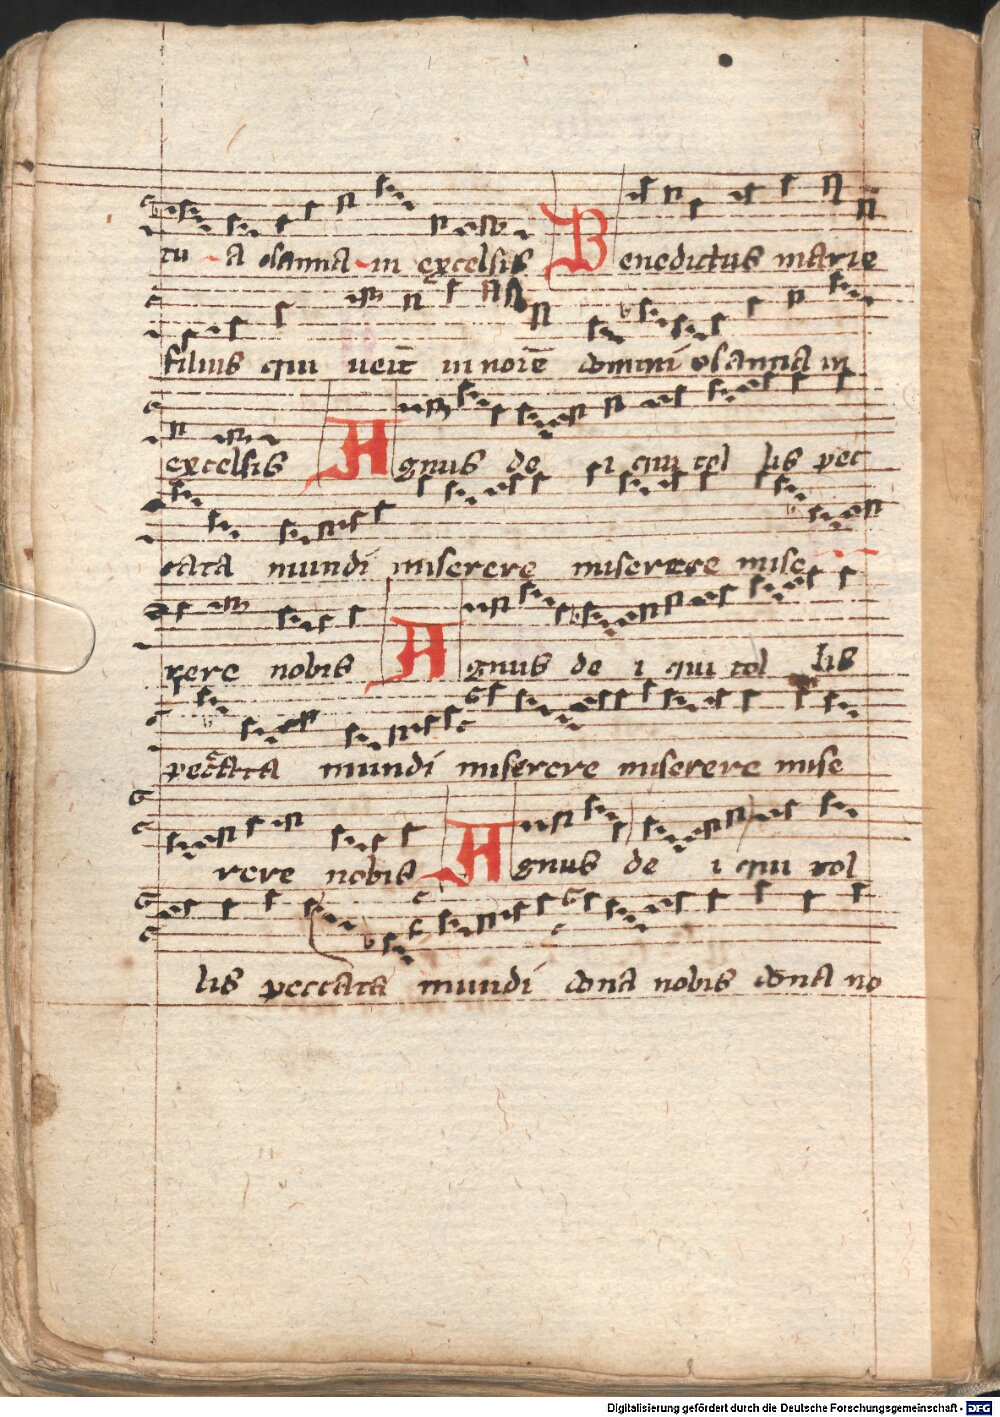 tu - a osanna - in excelsis Benedictus marie
filius qui ueit in noie domini osanna in
excelsis Agnus de i qui tol lis pec
cata mundi miserere miserere mise
rere nobis Agnus de i qui tol lis
peccata mundi miserere miserere mise
rere nobis Agnus de i qui tol
lis peccata mundi dona nobis dona no
Digitalisierung gefördert durch die Deutsche Forschungsgemeinschaft - DFG